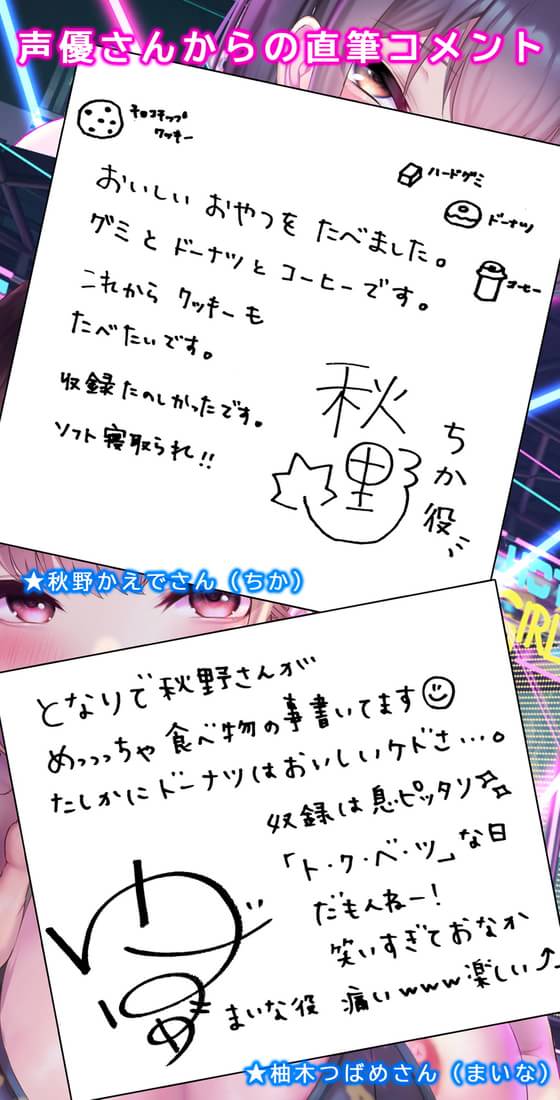 声優さんからの直筆コメント
チョコチップ
クッキー
ハードグミ
ドーナツ
コーヒー
おいしい おやつを たべました。
グミと ドーナツと コーヒーです。
これから クッキーも
たべたいです。
収録たのしかったです。
ソフト寝取られ!!
秋野
ちか役
★秋野かえでさん（ちか）
GIRL
となりで秋野さんが
めっっっちゃ食べ物の事書いてます
たしかにドーナツはおいしいケドさ…。
収録は息ピッタリ
「ト・ク・ベ・ツ」な日
だもんねー!
笑いすぎておなか
痛いwww楽しい⤴
まいな役
★柚木つばめさん（まいな）